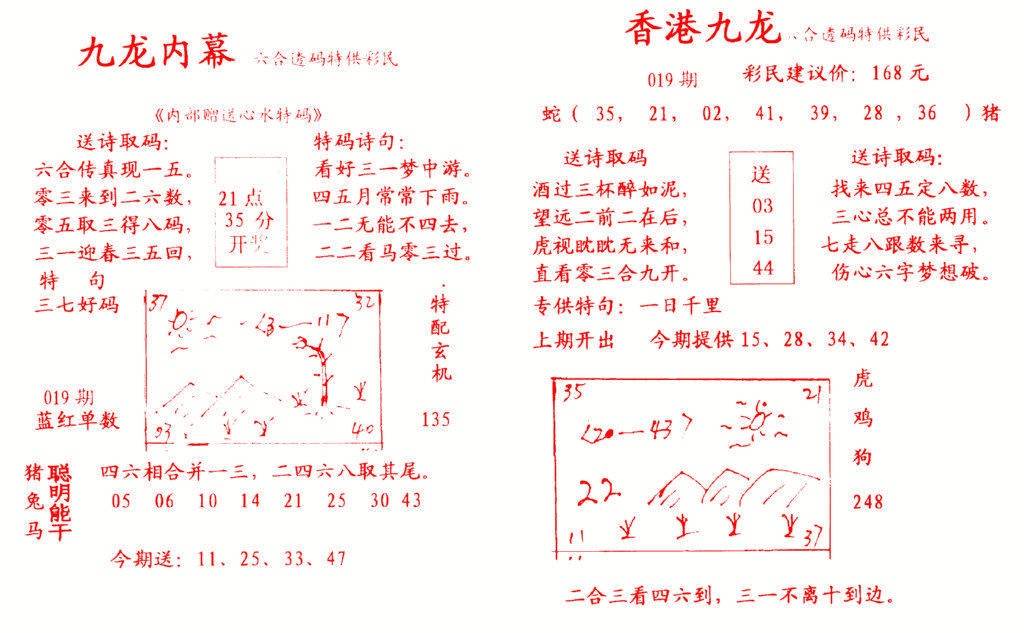 九龙内幕 六合透码特供彩民
《内部赠送心水特码》
送诗取码：
六合传真现一五。
零三来到二六数，
零五取三得八码，
三一迎春三五回，
特 句
三七好码
21 点
35 分
开奖
特码诗句：
看好三一梦中游。
四五月常常下雨。
一二无能不四去，
二二看马零三过。
019 期
蓝红单数
37
32
〈13—117
03
40
特配玄机
135
猪兔马
聪明能干
四六相合并一三，二四六八取其尾。
05 06 10 14 21 25 30 43
今期送：11、25、33、47
香港九龙 六合透码特供彩民
019 期
彩民建议价：168 元
蛇（ 35， 21， 02， 41， 39， 28 ，36 ）猪
送诗取码
酒过三杯醉如泥，
望远二前二在后，
虎视眈眈无来和，
直看零三合九开。
送
03
15
44
送诗取码：
找来四五定八数，
三心总不能两用。
七走八跟数来寻，
伤心六字梦想破。
专供特句：一日千里
上期开出 今期提供 15、28、34、42
35
21
〈20—43〉
22
11
37
虎
鸡
狗
248
二合三看四六到，三一不离十到边。